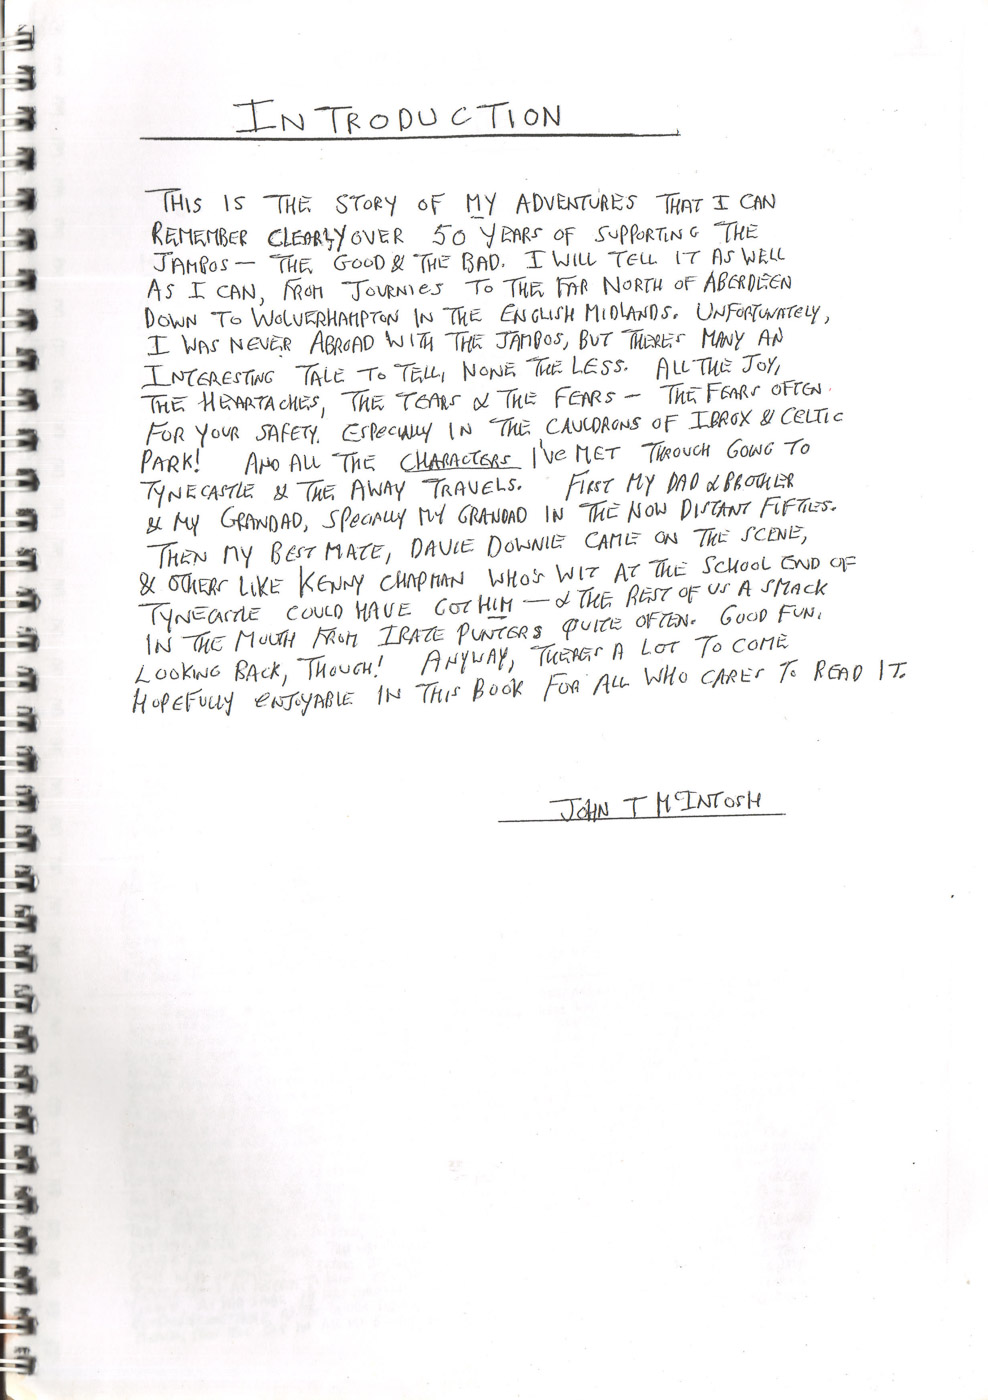 INTRODUCTION
THIS IS THE STORY OF MY ADVENTURES THAT I CAN
REMEMBER CLEARLY OVER 50 YEARS OF SUPPORTING THE
JAMBOS — THE GOOD & THE BAD. I WILL TELL IT AS WELL
AS I CAN, FROM JOURNIES TO THE FAR NORTH OF ABERDEEN
DOWN TO WOLVERHAMPTON IN THE ENGLISH MIDLANDS. UNFORTUNATELY,
I WAS NEVER ABROAD WITH THE JAMBOS, BUT THERES MANY AN
INTERESTING TALE TO TELL, NONE THE LESS. ALL THE JOY,
THE HEARTACHES, THE TEARS & THE FEARS — THE FEARS OFTEN
FOR YOUR SAFETY. ESPECIALLY IN THE CAULDRONS OF IBROX & CELTIC
PARK! AND ALL THE CHARACTERS I'VE MET THROUGH GOING TO
TYNECASTLE & THE AWAY TRAVELS. FIRST MY DAD & BROTHER
& MY GRANDAD, SPECIALLY MY GRANDAD IN THE NOW DISTANT FIFTIES.
THEN MY BEST MATE, DAVIE DOWNIE CAME ON THE SCENE,
& OTHERS LIKE KENNY CHAPMAN WHO'S WIT AT THE SCHOOL END OF
TYNECASTLE COULD HAVE GOT HIM — & THE REST OF US A SMACK
IN THE MOUTH FROM IRATE PUNTERS QUITE OFTEN. GOOD FUN,
LOOKING BACK, THOUGH! ANYWAY, THERES A LOT TO COME
HOPEFULLY ENJOYABLE IN THIS BOOK FOR ALL WHO CARES TO READ IT.
JOHN T MCINTOSH